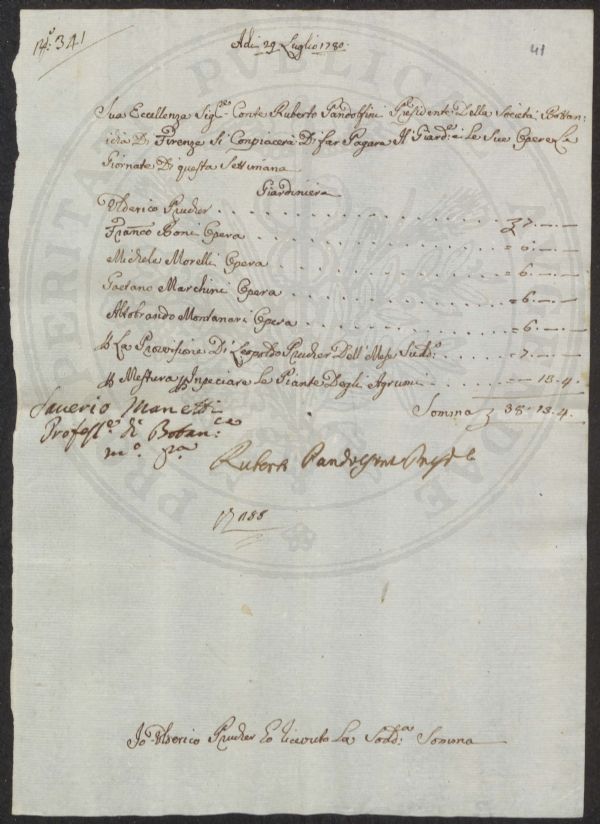 N.° 341
41
Adi 29 Luglio 1780.
Sua Eccellenza Sig.re Conte Ruberto Pandolfini Presidente Della Società Bottan-
Di Firenze Si Conpiacerà Di far Pagare Il Giard.e e Le Sue Opere La
Giornate Di questa Settimana
Giardiniera
Ulderico Prucker . . . 7 . — —
Franco Boni Opera . . . = 6 . — —
Michele Morelli Opera . . . = 6 . — —
Gaetano Marchini Opera . . . = 6 . — —
Aldobrando Montanari Opera . . . = 6 . — —
La Provvisione Di Leopoldo Prucker Dell Mese Sud.o . . . = 7 . — —
Mestura Inpeciare Le Piante Degli Agrumi . . . = — 13. 4.
Somma 38. 13. 4.
Saverio Manetti
Profess.e di Botan.ca
m.o p.a
Ruberto Pandolfini Presid.e
188
Io Ulderico Prucker ho riceuto La Sodd.a Somma